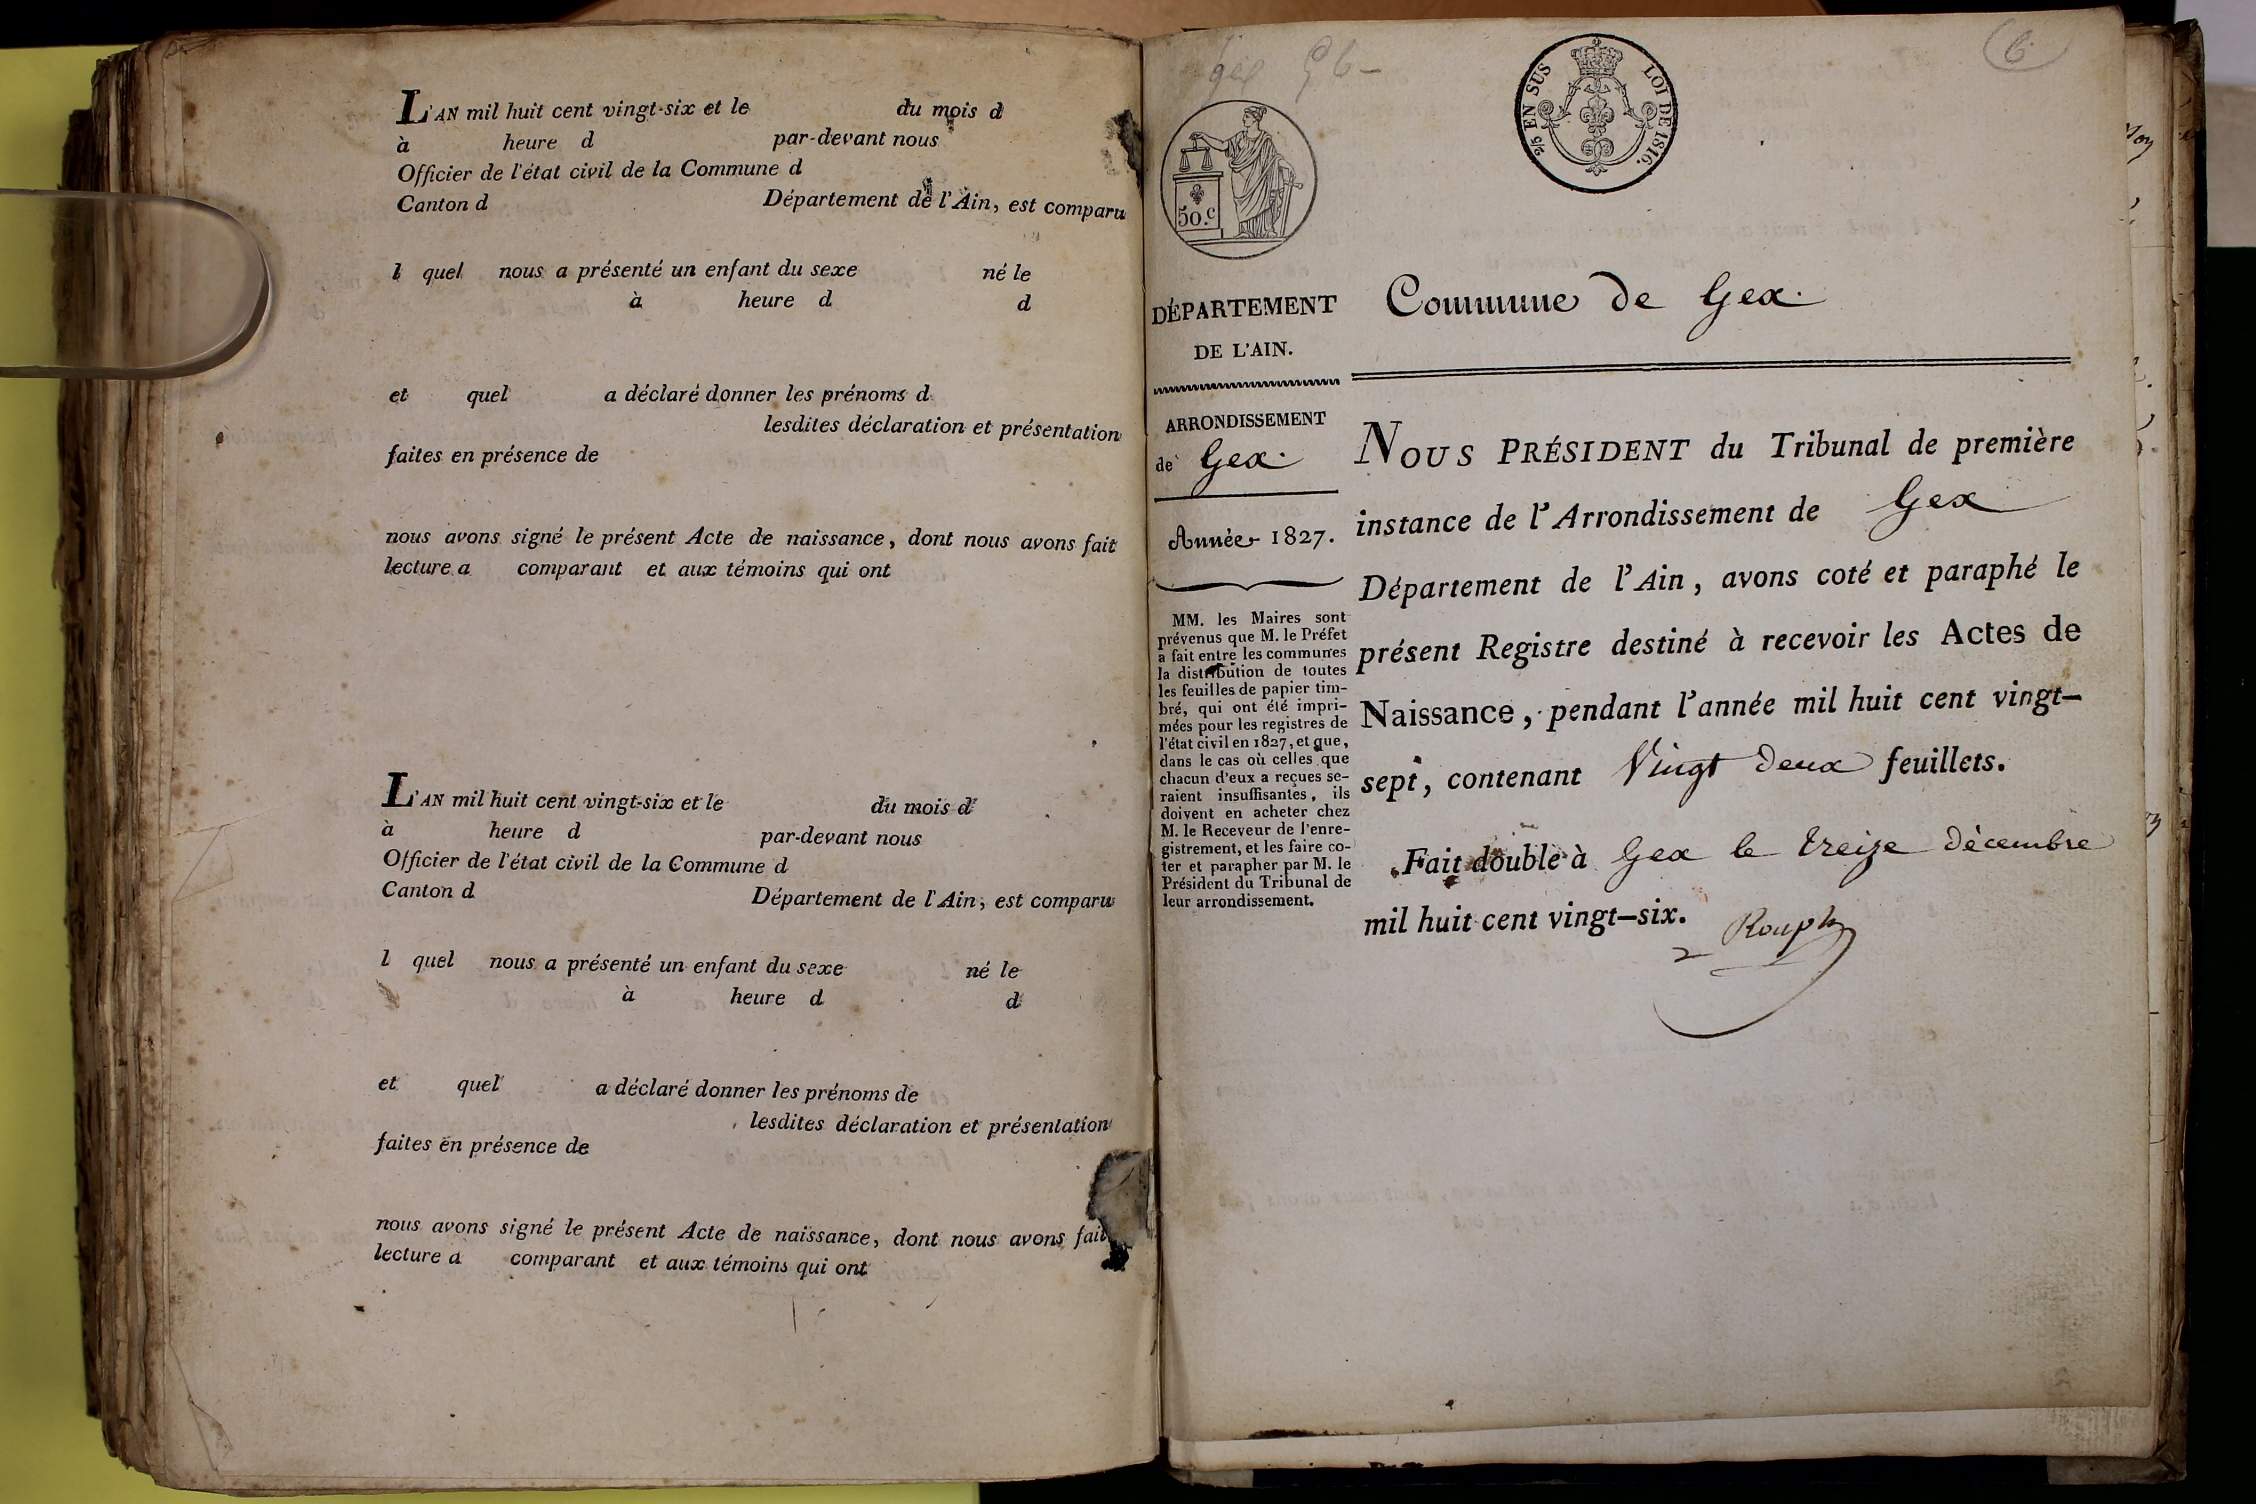 L'AN mil huit cent vingt-six et le du mois d
à heure d par-devant nous
Officier de l'état civil de la Commune d
Canton d Département de l'Ain, est comparu
l quel nous a présenté un enfant du sexe né le
à heure d d
et quel a déclaré donner les prénoms d
lesdites déclaration et présentation
faites en présence de
nous avons signé le présent Acte de naissance, dont nous avons fait
lecture a comparant et aux témoins qui ont
L'AN mil huit cent vingt-six et le du mois d
à heure d par-devant nous
Officier de l'état civil de la Commune d
Canton d Département de l'Ain, est comparu
l quel nous a présenté un enfant du sexe né le
à heure d d
et quel a déclaré donner les prénoms de
lesdites déclaration et présentation
faites en présence de
nous avons signé le présent Acte de naissance, dont nous avons fait
lecture a comparant et aux témoins qui ont
2/5 EN SUS LOI DE 1816.
50.c
DÉPARTEMENT
DE L'AIN.
ARRONDISSEMENT
de Gex.
Année 1827.
MM. les Maires sont
prévenus que M. le Préfet
a fait entre les communes
la distribution de toutes
les feuilles de papier tim-
bré, qui ont été impri-
mées pour les registres de
l'état civil en 1827, et que,
dans le cas où celles que
chacun d'eux a reçues se-
raient insuffisantes, ils
doivent en acheter chez
M. le Receveur de l'enre-
gistrement, et les faire co-
ter et parapher par M. le
Président du Tribunal de
leur arrondissement.
Commune de Gex.
NOUS PRÉSIDENT du Tribunal de première
instance de l'Arrondissement de Gex
Département de l'Ain, avons coté et paraphé le
présent Registre destiné à recevoir les Actes de
Naissance, pendant l'année mil huit cent vingt-
sept, contenant Vingt deux feuillets.
Fait double à Gex le treize décembre
mil huit cent vingt-six.